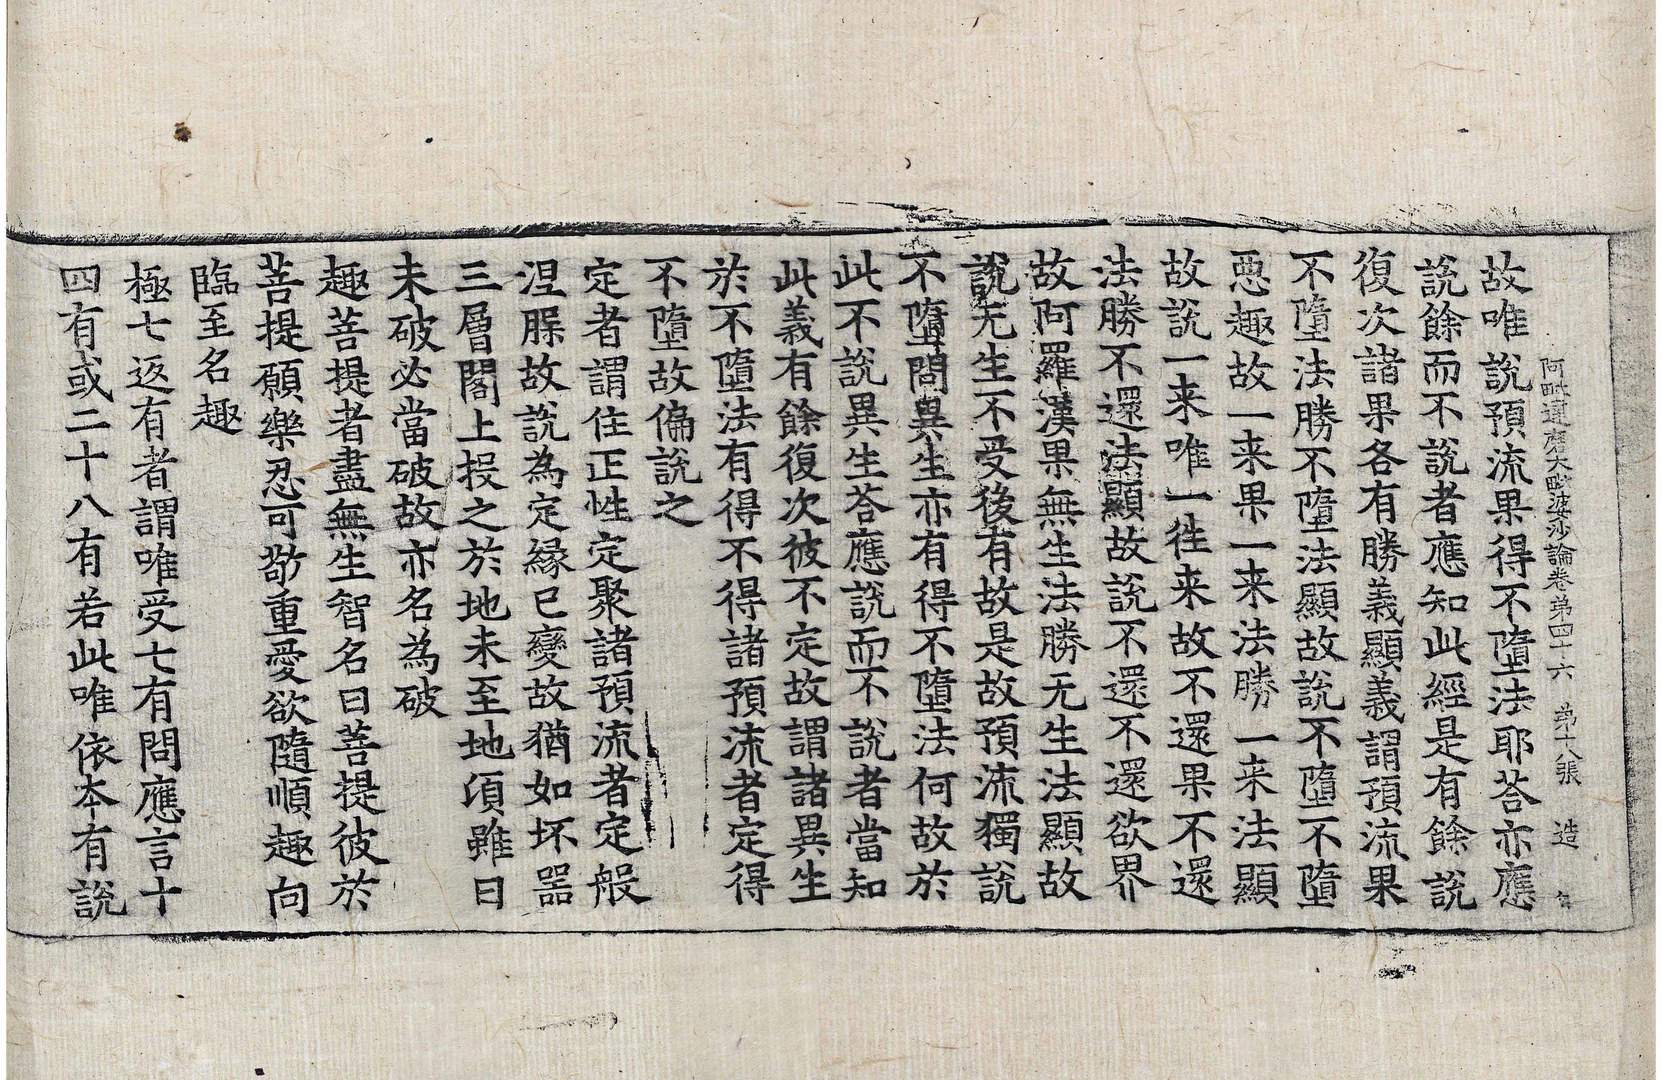 阿毗達磨大毗婆沙論卷第四十六 第十八張 造
故唯說預流果得不墮法耶荅亦應
說餘而不說者應知此經是有餘說
復次諸果各有勝義顯義謂預流果
不墮法勝不墮法顯故說不墮不墮
惡趣故一来果一来法勝一来法顯
故說一来唯一往来故不還果不還
法勝不還法顯故說不還不還欲界
故阿羅漢果無生法勝无生法顯故
說无生不受後有故是故預流獨說
不墮問異生亦有得不墮法何故於
此不說異生荅應說而不說者當知
此義有餘復次彼不定故謂諸異生
於不墮法有得不得諸預流者定得
不墮故偏說之
定者謂住正性定聚諸預流者定般
涅槃故說為定緣已變故猶如坏器
三層閣上投之於地未至地頃雖曰
未破必當破故亦名為破
趣菩提者盡無生智名曰菩提彼於
菩提願樂忍可敬重愛欲隨順趣向
臨至名趣
極七返有者謂唯受七有問應言十
四有或二十八有若此唯依本有說